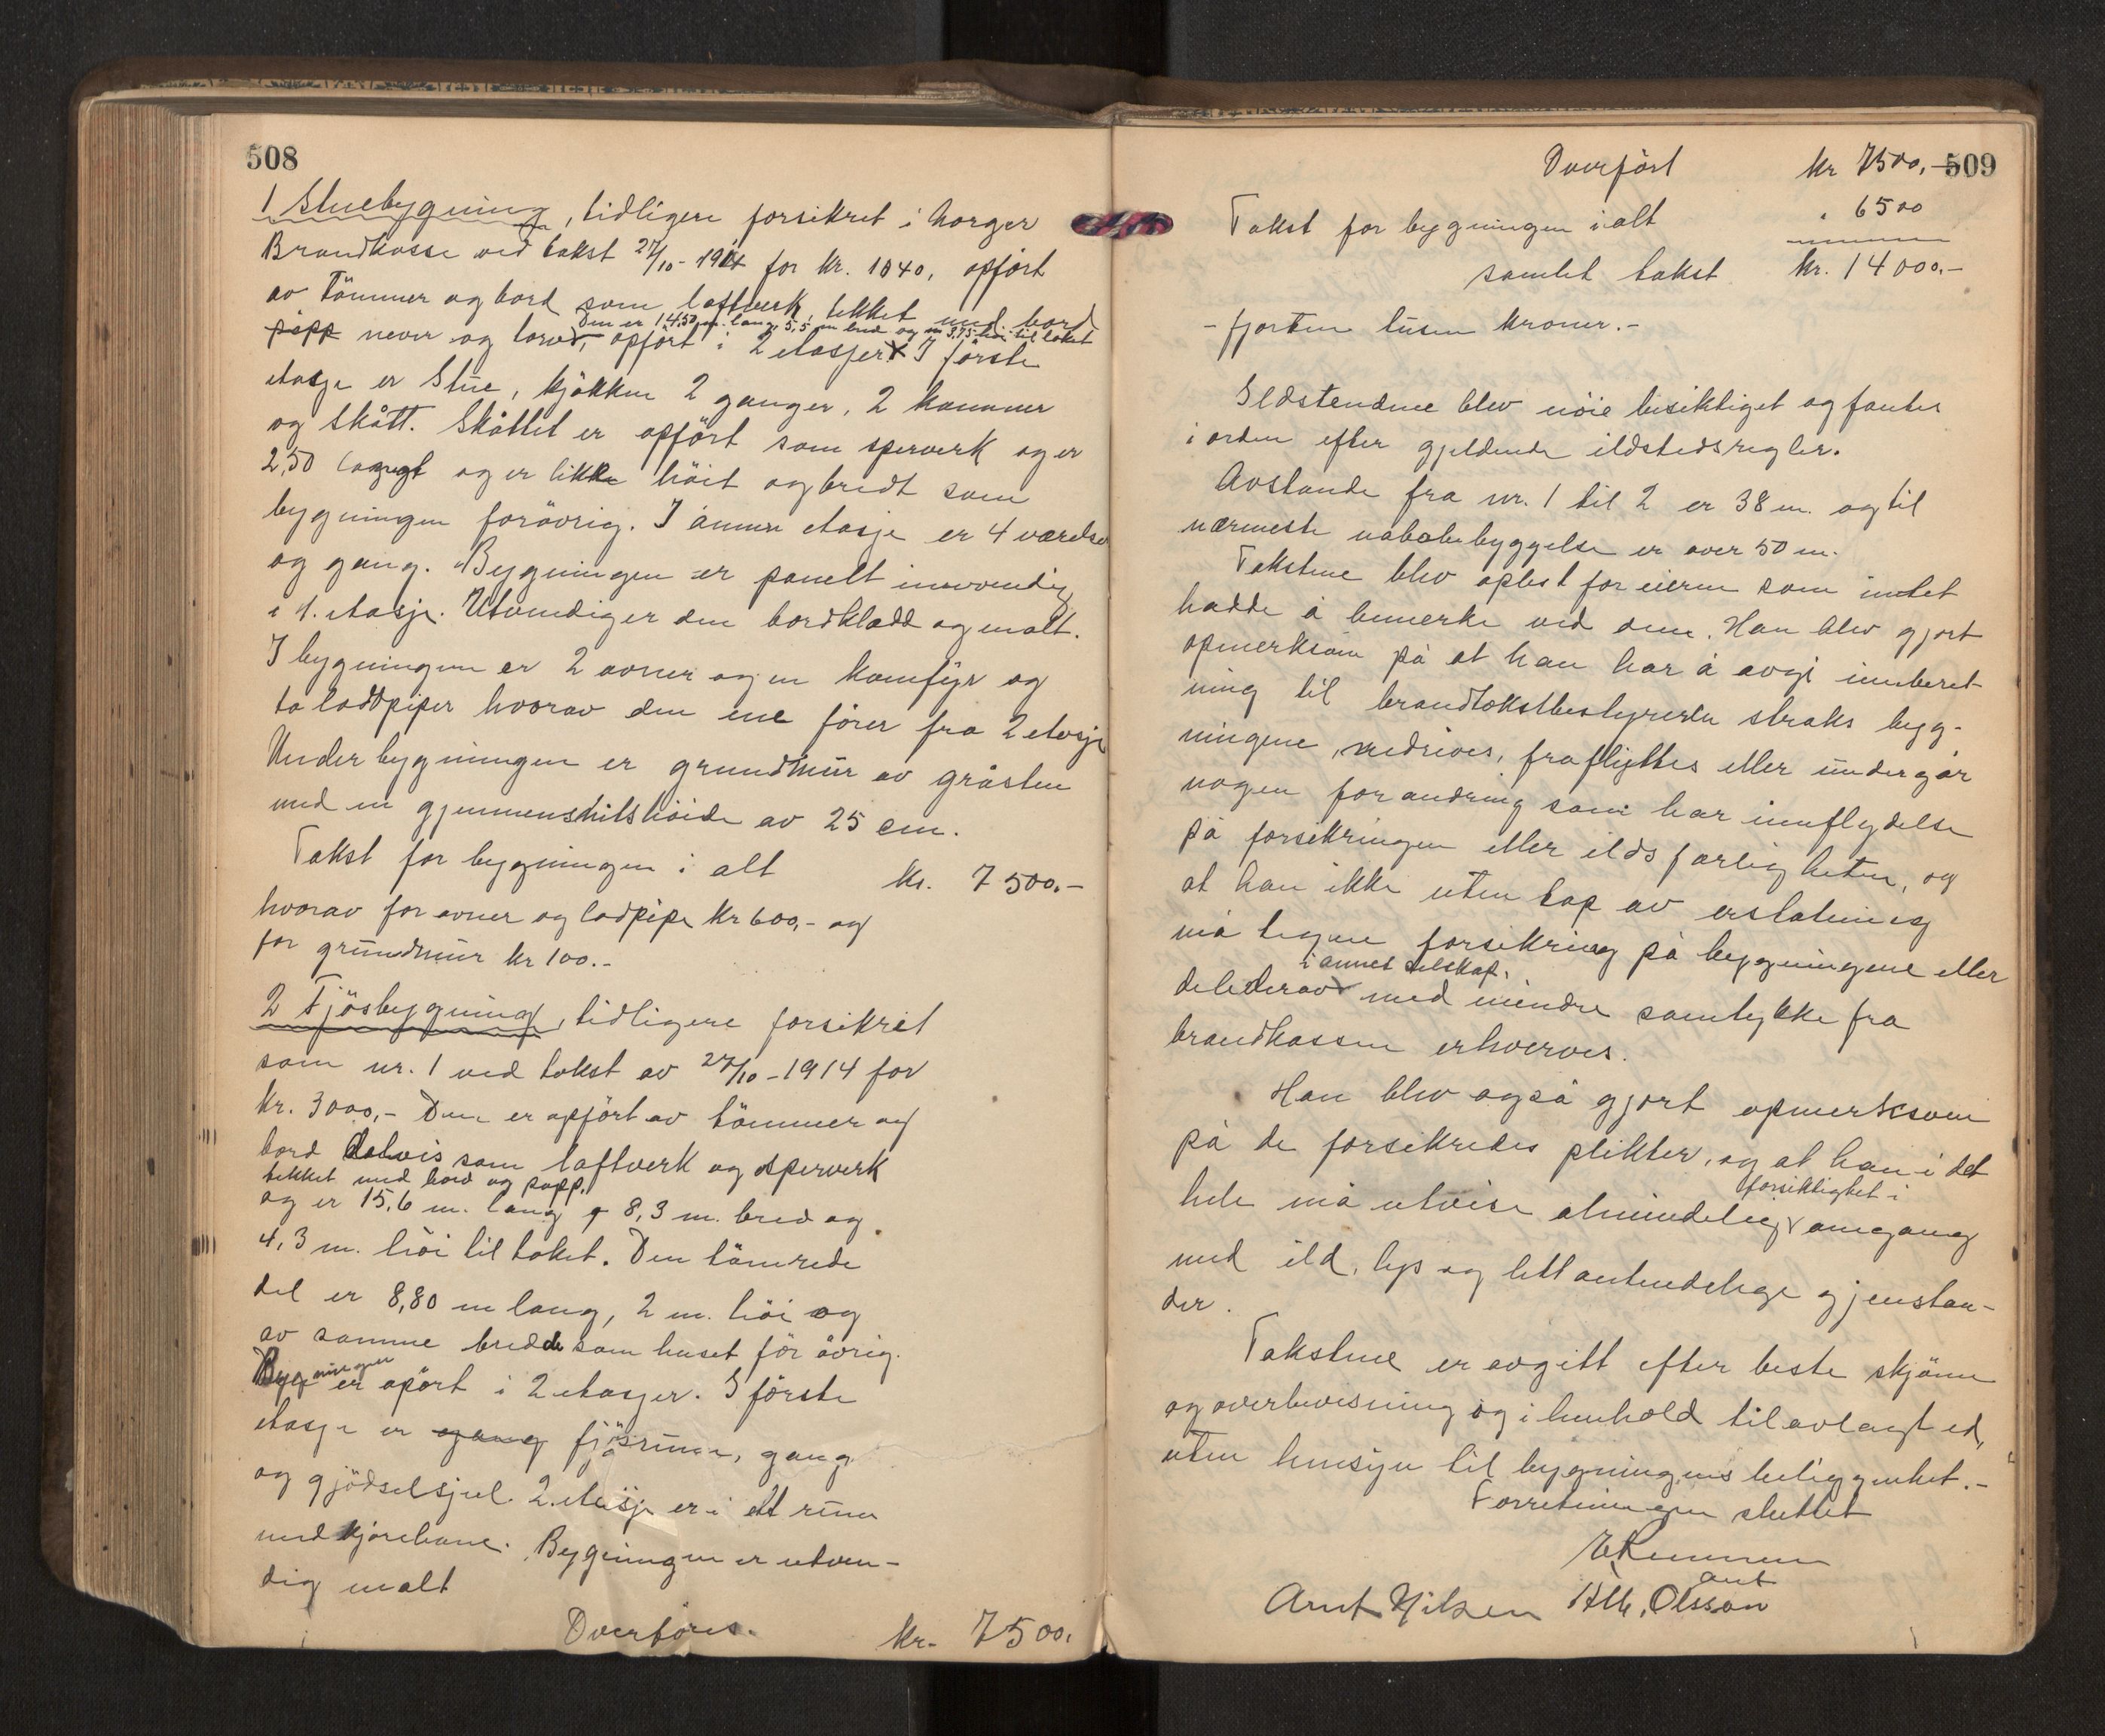 508
1 Stuebygning, tidligere forsikret i Norges
Brandkasse ved takst 27/10-1914 for kr. 1040, opfört
av tömmer og bord som laftverk, tekket med bord
Den er 14,50 m. lang, 5,5 m bred og 3,75 höi til taket
papp never og torv, opfört i 2 etasjer. I förste
etasje er stue, kjökken 2 ganger, 2 kammer
og skått. Skåttet er opfört som sperverk og er
2,50 langt og er likke höit og bredt som
bygningen forövrig. I annen etasje er 4 værelser
og gang. Bygningen er panelt innvendig
i 1. etasje. Utvendig er den bordkladd og malt.
I bygningen er 2 ovner og en komfyr og
to loddpiper hvorav den ene förer fra 2 etasje
Under bygningen er grundmur av gråsten
med en gjennemsnitshöide av 25 cm.
Takst for bygningen i alt kr. 7500.-
hvorav for ovner og lodpipe kr 600,- og
for grundmur kr 100.-
2 Fjösbygning, tidligere forsikret
som nr. 1 ved takst av 27/10-1914 for
kr. 3000,- Den er opfört av tömmer og
bord delvis som laftverk og sperverk
tekket med bord og papp,
og er 15,6 m. lang 8,3 m. bred og
4,3 m. höi til taket. Den tömrede
del er 8,80 m lang, 2 m. höi og
av samme bredde som huset för övrig.
Bygningen er opört i 2 etasjer. I förste
etasje er gang fjösrum, gang
og gjödselsjul. 2. etasje er i ett rum
med kjörebane. Bygningen er utven-
dig malt
Overföres. kr. 7500.
Overfört kr 7500,- 509
Takst for bygningen ialt " 6500
samlet takst kr. 14000.-
- fjorten tusen kroner.-
Ildstendene blev nöie besiktiget og fantes
i orden efter gjeldende ildstedsregler.
Avstande fra nr. 1 til 2 er 38 m. og til
nærmeste nabobebyggelse er over 50 m.
Takstene blev oplest for eieren som intet
hadde å bemerke ved dem. Han blev gjort
opmerksom på at han har å avgi innberet-
ning til brandtakstbestyreren straks byg-
ningene, nedrives, fraflyttes eller undergår
nogen forandring som har innflydelse
på forsikringen eller ildsfarligheten, og
at han ikke uten tap av erstatning
må tegne forsikring på bygningene eller
i annet selskap.
dele derav med mindre samtykke fra
brandkassen erhverves.
Han blev også gjort opmerksom
på de forsikredes plikter, og at han i det
forsiktighet i
hele må utvise almindelig omgang
med ild, lys og lett antendelige gjenstan-
der.
Takstene er avgitt efter beste skjönn
og overbevisning og i henhold til avlagt ed,
uten hensyn til bygningens beliggenhet.-
Forretningen sluttet
Arnt Nilsen Alb. Olsson